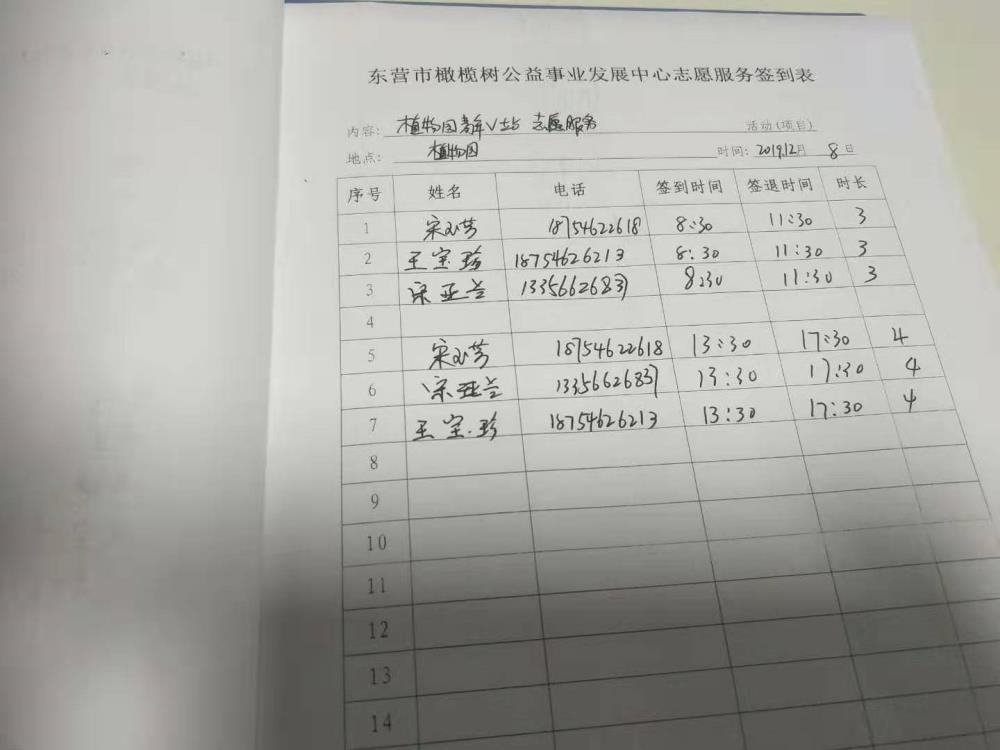 东营市橄榄树公益事业发展中心志愿服务签到表
内容: 植物园青年V站 志愿服务 活动(项目)
地点: 植物园 时间: 2019.12月 8日
序号 姓名 电话 签到时间 签退时间 时长
1 宋玉芳 18754622618 8:30 11:30 3
2 王宝珍 18754626213 8:30 11:30 3
3 宋亚兰 13356626837 8:30 11:30 3
4
5 宋玉芳 18754622618 13:30 17:30 4
6 宋亚兰 13356626837 13:30 17:30 4
7 王宝珍 18754626213 13:30 17:30 4
8
9
10
11
12
13
14